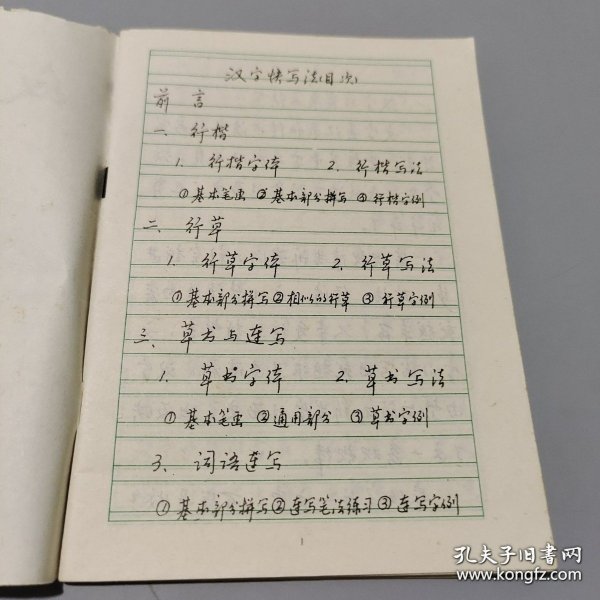 汉字快写法(目次)
前言
一、行楷
1. 行楷字体 2. 行楷写法
①基本笔画 ②基本部分拼写 ③行楷字例
二、行草
1. 行草字体 2. 行草写法
①基本部分拼写 ②相似的行草 ③行草字例
三、草书与连写
1. 草书字体 2. 草书写法
①基本笔画 ②通用部分 ③草书字例
3. 词语连写
①基本部分拼写 ②连写笔法练习 ③连写字例
1
孔夫子旧书网
www.kongfz.com